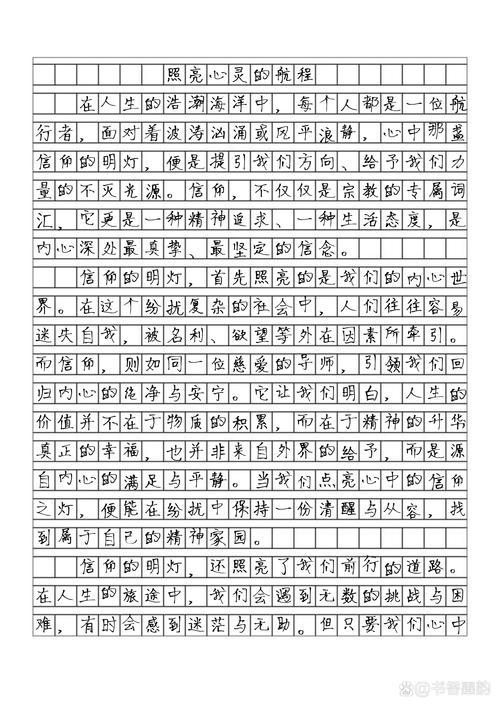 照亮心灵的航程
在人生的浩瀚海洋中，每个人都是一位航
行者，面对着波涛汹涌或风平浪静，心中那盏
信仰的明灯，便是提引我们方向、给予我们力
量的不灭光源。信仰，不仅仅是宗教的专属词
汇，它更是一种精神追求、一种生活态度，是
内心深处最真挚、最坚定的信念。
信仰的明灯，首先照亮的是我们的内心世
界。在这个纷扰复杂的社会中，人们往往容易
迷失自我，被名利、欲望等外在因素所牵引。
而信仰，则如同一位慈爱的导师，引领我们回
归内心的纯净与安宁。它让我们明白，人生的
价值并不在于物质的积累，而在于精神的升华
真正的幸福，也并非来自外界的给予，而是源
自内心的满足与平静。当我们点亮心中的信仰
之灯，便能在纷扰中保持一份清醒与从容，找
到属于自己的精神家园。
信仰的明灯，还照亮了我们前行的道路。
在人生的旅途中，我们会遇到无数的挑战与困
难，有时会感到迷茫与无助。但只要我们心中